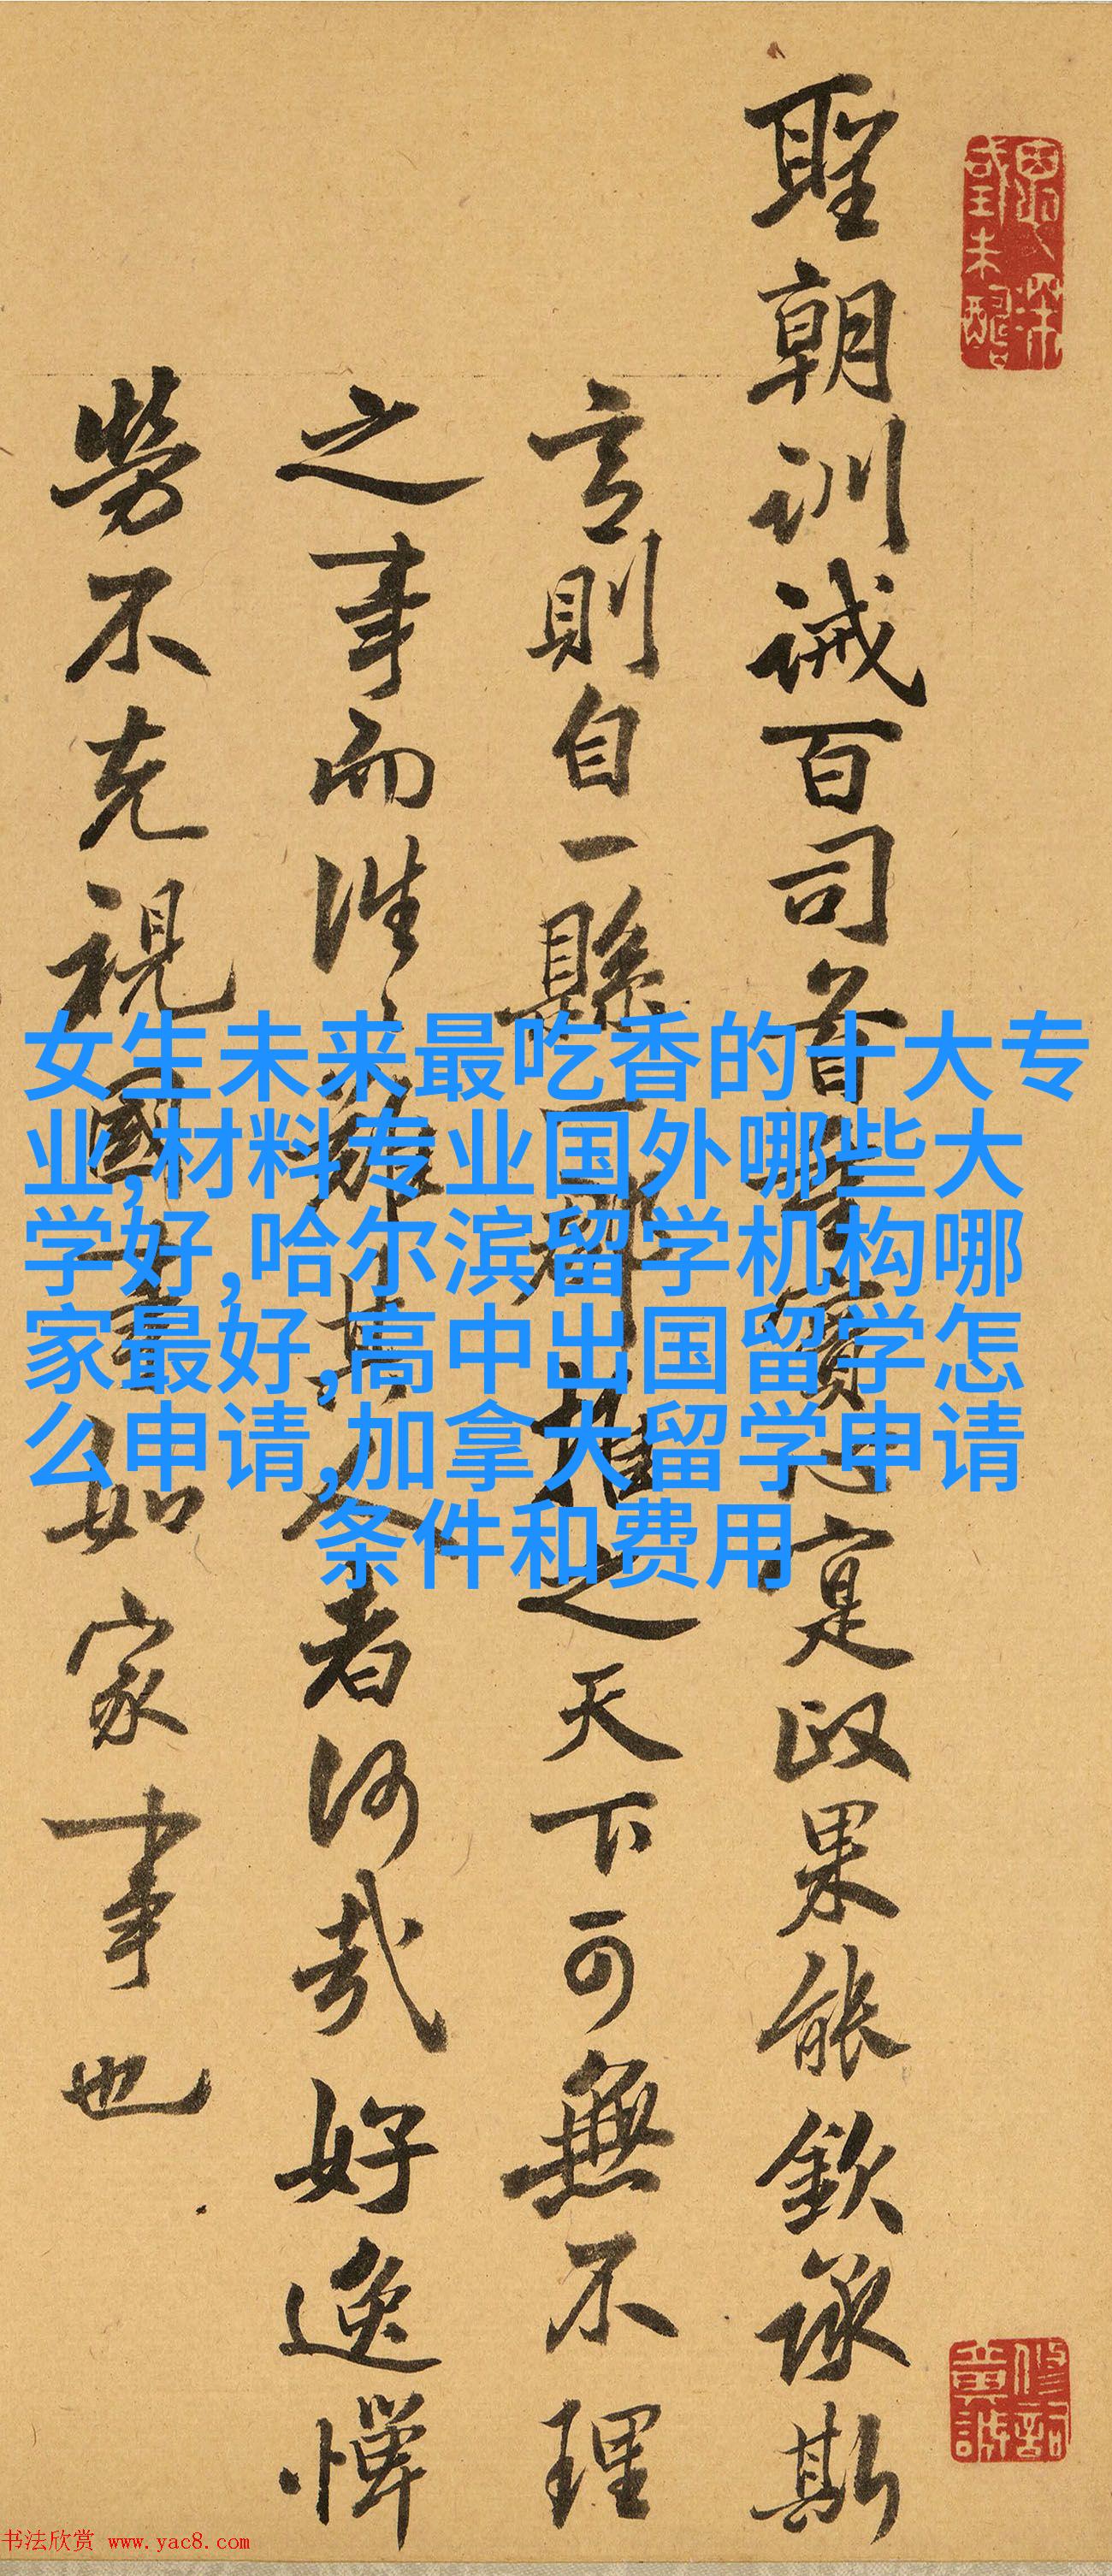 聖朝訓誡百司首實心寔政果能欽承斯
言則自一縣一郡推之天下可無不理
之事而往難其人者何哉好逸憚
勞不克視國事如家事也
女生未来最吃香的十大专
业,材料专业国外哪些大
学好,哈尔滨留学机构哪
家最好,高中出国留学怎
么申请,加拿大留学申请
条件和费用
书法欣赏 www.yac8.com